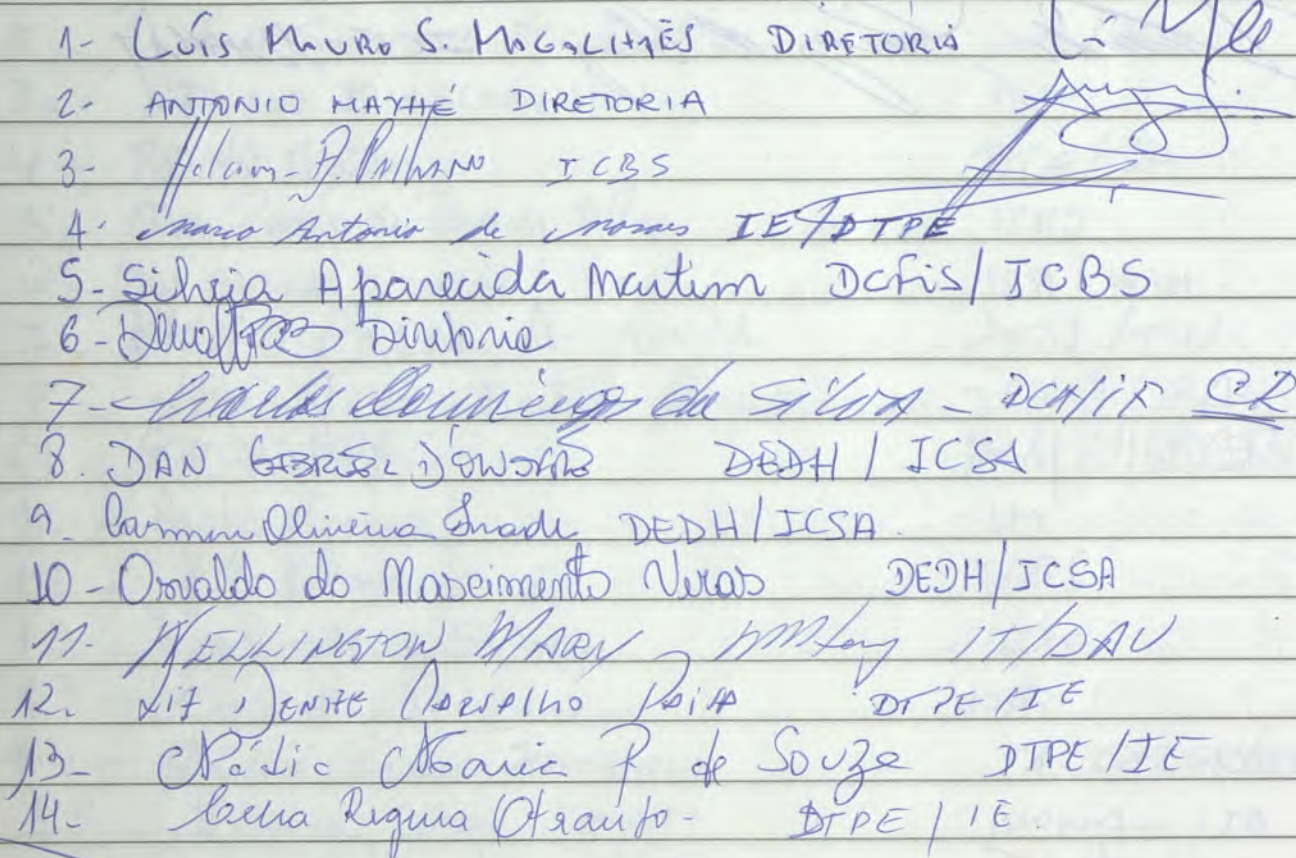 1- LUÍS MAURO S. MAGALHÃES DIRETORIA
2- ANTONIO MAYHÉ DIRETORIA
3- ICBS
4. Marco Antonio de Moraes IE/DTPE
5- Silvia Aparecida Martim DCFis/ICBS
6- Diretoria
7- Carlos Domingos da Silva - DCA/IF CR
8. DAN GABRIEL D'ONOFRE DEDH / ICSA
9. Carmen Oliveira Frade DEDH/ICSA.
10- Osvaldo do Nascimento Veras DEDH/ICSA
11- WELLINGTON MARY IT/DAU
12. LIZ DENIZE CARVALHO PAIVA DTPE/IE
13- Nádia Maria P. de Souza DTPE/IE
14- Célia Regina Otranto- DTPE / IE.